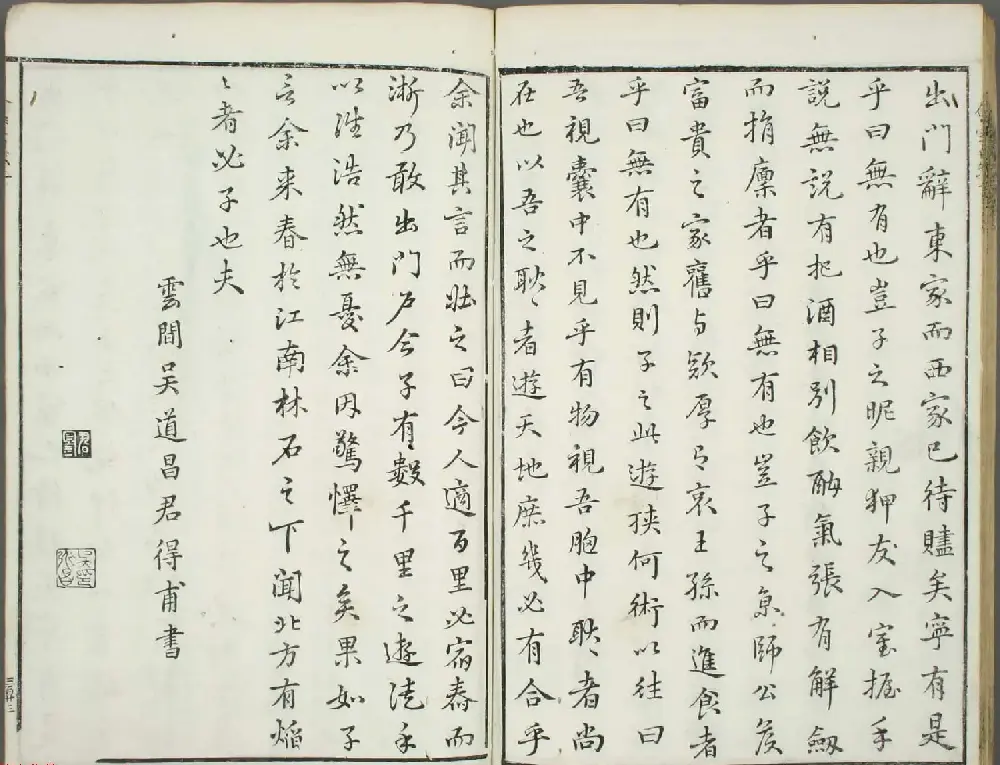 出門辭東家而西家已待贐矣寧有是
乎曰無有也豈子之昵親狎友入室握手
說無說有把酒相別飲酣氣張有解劔
而捐廩者乎曰無有也豈子之京師公矦
富貴之家舊与欵厚亏哀王孫而進食者
乎曰無有也然則子之此遊挾何術以往曰
吾視囊中不見乎有物視吾胸中耿〻者尚
在也以吾之耿〻者遊天地庶幾必有合乎
余聞其言而壯之曰今人適百里必宿舂而
淅乃敢出門戶今子有數千里之遊徒手
以往浩然無憂余因驚懌之矣果如子
言余来春於江南林石之下聞北方有焰
〻者必子也夫
雲間吳道昌君得甫書